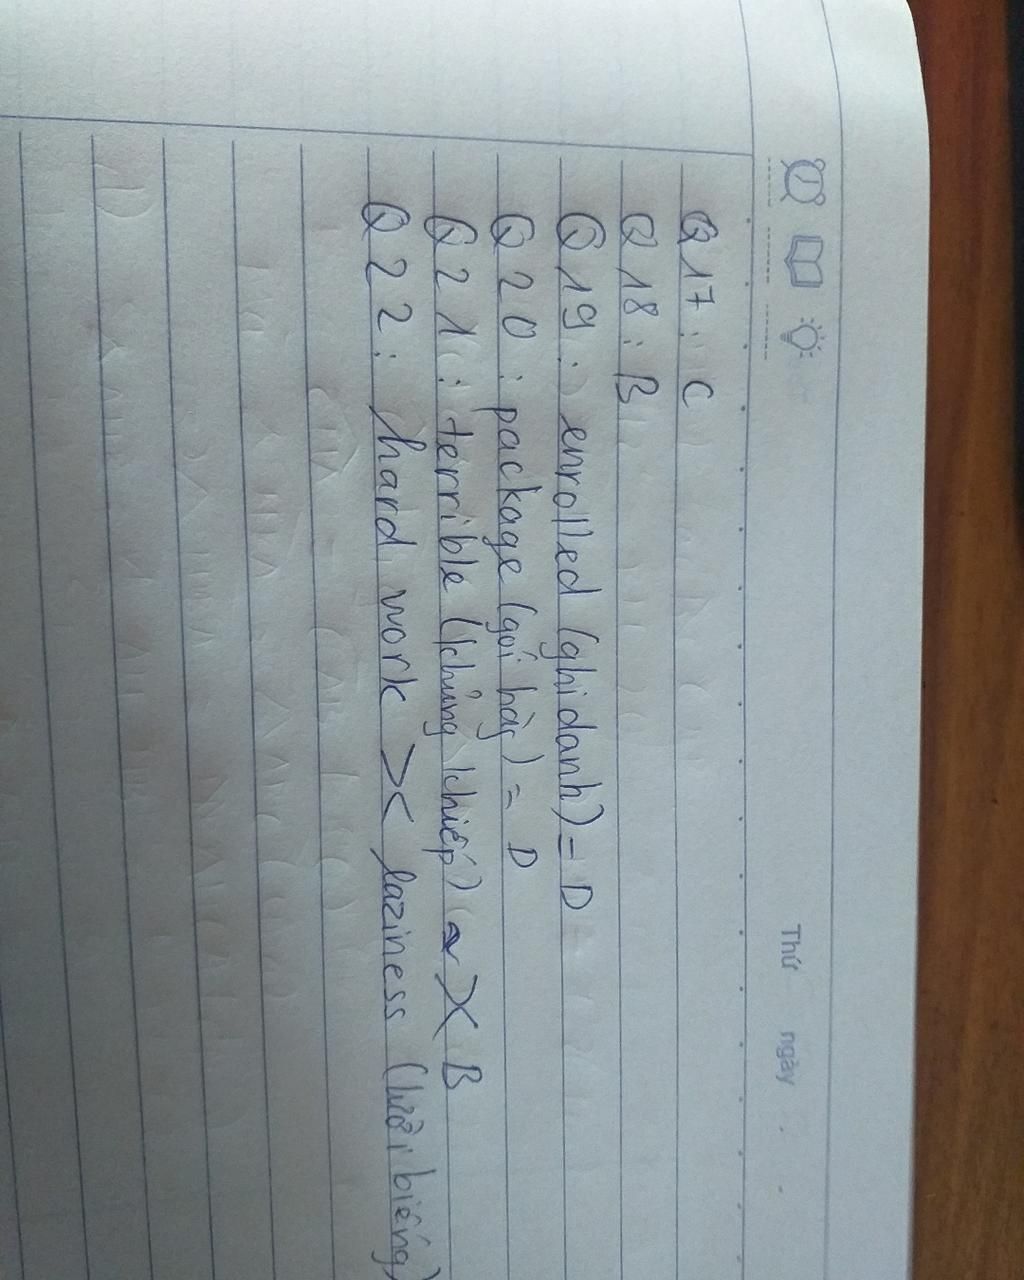 Thứ ngày
Q17: C
Q18: B
Q19: enrolled (ghi danh) = D
Q20: package (gói hàg) = D
Q21: terrible (khủng khiếp) >< B
Q22: hard work >< laziness (lười biếng)